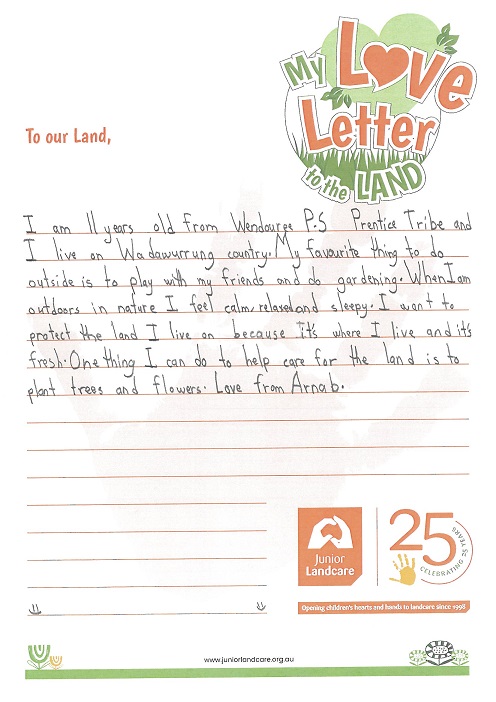 My Love
Letter
to the LAND
To our Land,
I am 11 years old from Wendouree P.S Prentice Tribe and
I live on Wadawurrung country. My favourite thing to do
outside is to play with my friends and do gardening. When I am
outdoors in nature I feel calm, relaxed and sleepy. I want to
protect the land I live on because it's where I live and it's
fresh. One thing I can do to help care for the land is to
plant trees and flowers. Love from Arnab.
Junior
Landcare
25
CELEBRATING 25 YEARS
Opening children's hearts and hands to landcare since 1998
www.juniorlandcare.org.au